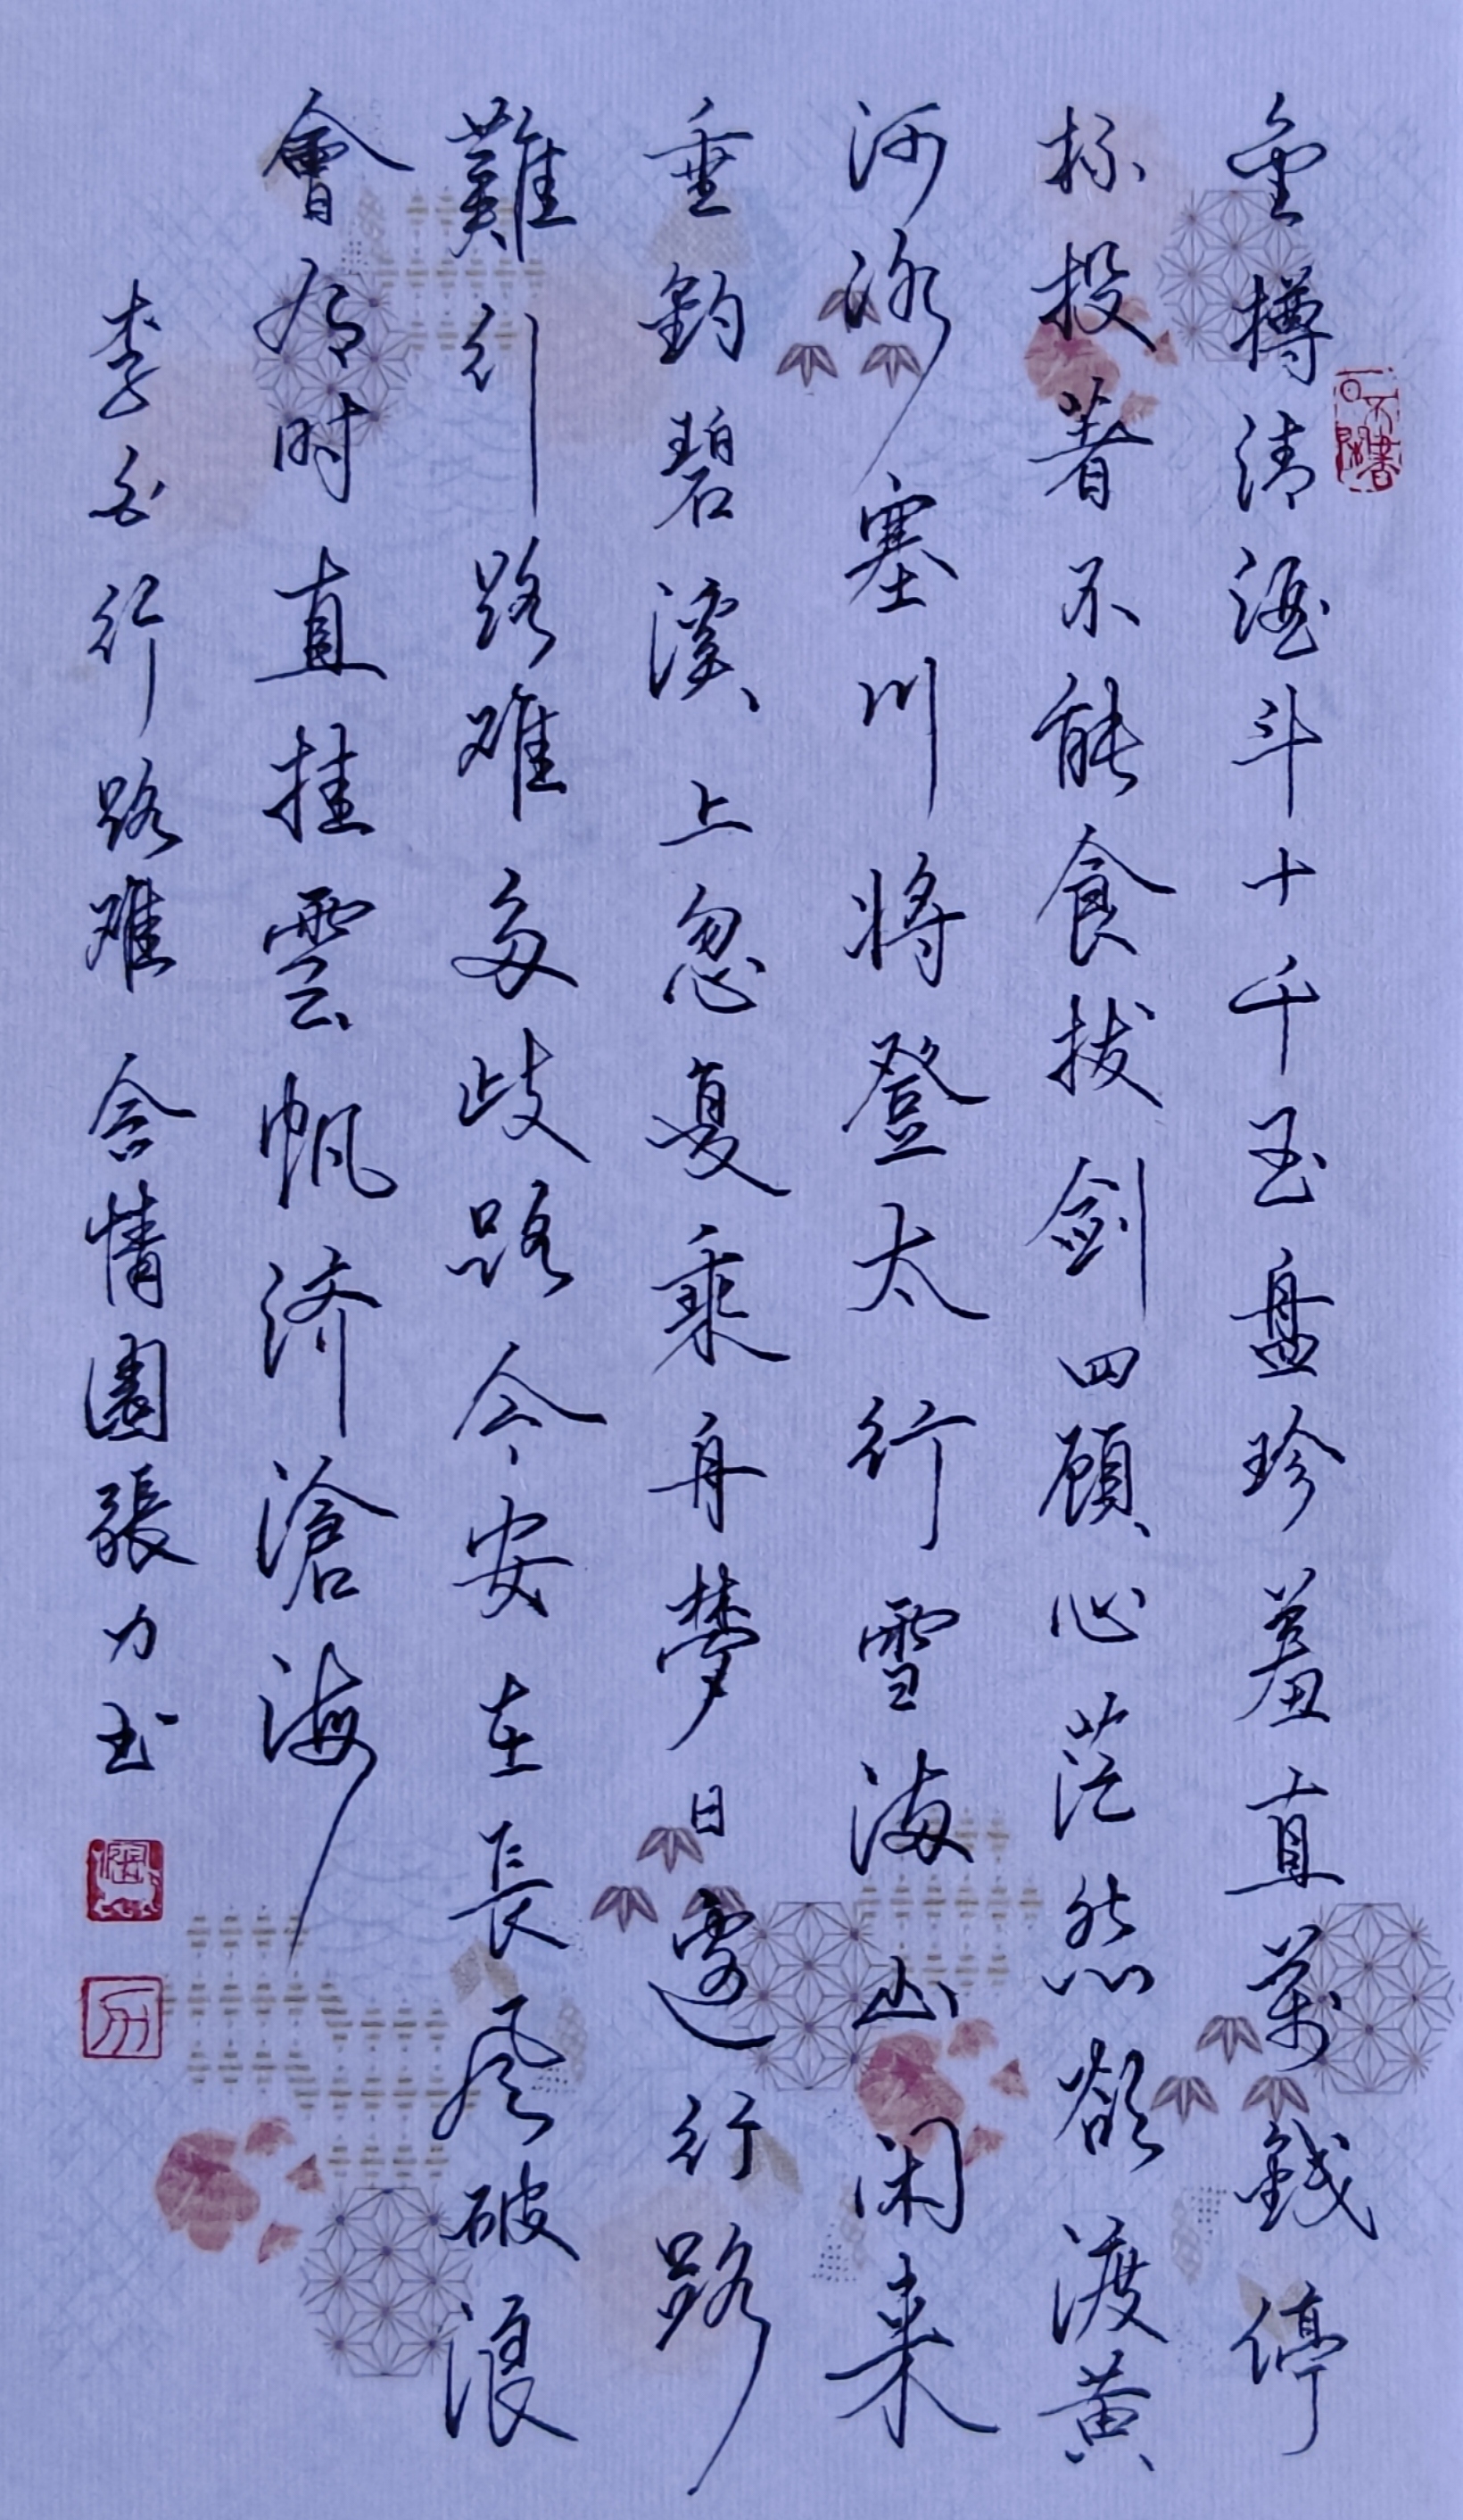 金樽清酒斗十千玉盘珍羞直萬錢停
杯投著不能食拔剑四顾心茫然欲渡黄
河冰塞川将登太行雪满山闲来
垂釣碧溪上忽复乘舟梦日邊行路
難行路难多歧路今安在長风破浪
會有时直挂雲帆济滄海
李白行路难 含情園張力书